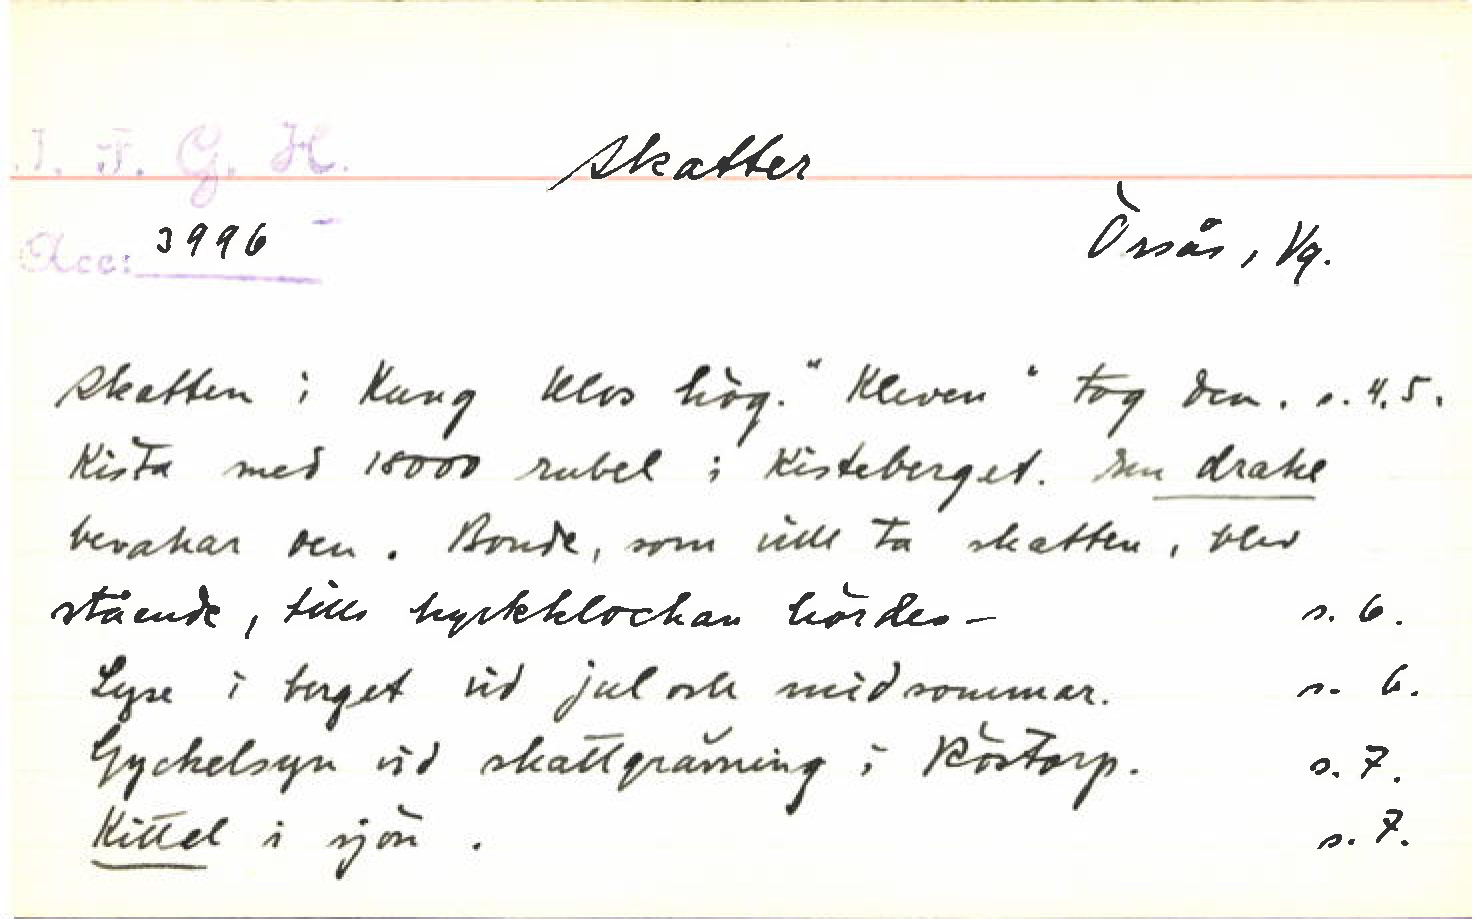 I. F. G. H.
Skatter
Acc: 3996
Örsås, Vg.
Skatten i Kung Klos hög. "Kleven" tog den. s. 4, 5.
Kista med 18000 rubel i Kisteberget. En drake
bevakar den. Bonde, som vill ta skatten, blev
stående, tills kyrkklockan hördes – s. 6.
Lyse i berget vid jul och midsommar. s. 6.
Gyckelsyn vid skattgrävning i Röstorp. s. 7.
Kittel i sjön. s. 7.